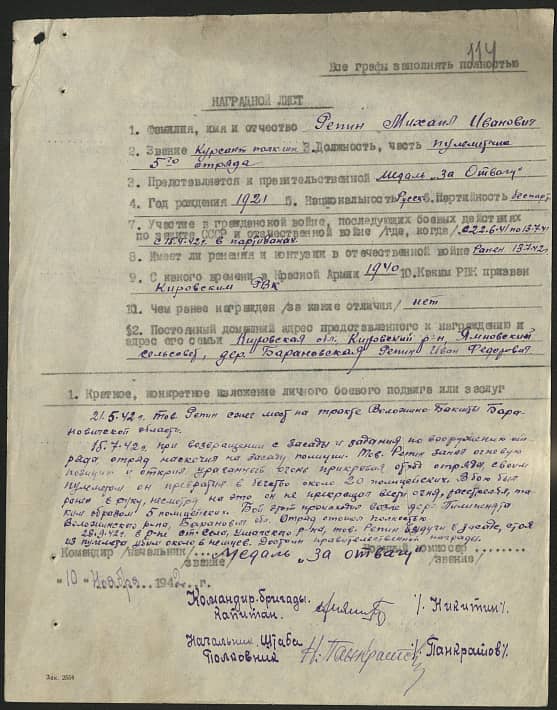 114
Все графы заполнять полностью
НАГРАДНОЙ ЛИСТ
1. Фамилия, имя и отчество Репин Михаил Иванович
2. Звание Курсант полк шк 3. Должность, часть пулеметчик
5го отряда
3. Представляется к правительственной медаль "За Отвагу"
4. Год рождения 1921 5. Национальность Русск 6. Партийность беспарт
7. Участие в гражданской войне, последующих боевых действиях
по защите СССР и отечественной войне /где, когда/ с 22.6.41 по 13.7.41
с 15.4.42г. в партизанах
8. Имеет ли ранения и контузии в отечественной войне Ранен 15.7.42г.
9. С какого времени в Красной Армии 1940 10. Каким РВК призван
Кировским РВК
10. Чем ранее награжден /за какие отличия/ нет
12. Постоянный домашний адрес представленного к награждению и
адрес его семьи Кировская обл. Кировский р-н,
сельсовет, дер. Барановская Репин Иван Федорович
1. Краткое, конкретное изложение личного боевого подвига или заслуг
21.5.42г. тов. Репин сжег мост на тракте Воложино-Бакшты Бара-
новичской области.
15.7.42г. при возвращении с засады и задания по вооружению от-
ряда отряд наскочил на засаду полиции. Тов. Репин занял огневую
позицию и открыв ураганный огонь прикрывая отход отряда, своим
пулеметом он превратил в бегство около 20 полицейских. В бою был
ранен в руку, несмотря на это он не прекращал вести огня, расстрелял, та-
ким образом 5 полицейских. Бой этот происходил возле дер.
Воложинского р-на, Баранович обл. Отряд отошел полностью
28.9.42г. в р-не ст. Село, р-на, тов. Репин будучи в засаде, стоя
из пулемета убил около 8 немцев. Достоин правительственной награды.
Командир /начальник/ Медаль "За отвагу" комиссар
/звание/ /звание/
"10" Ноября 1942 г.
Командир бригады.
капитан. /. Никитин/.
Начальник Штаба
Полковник Н. Панкратов /. Панкратов/.
Зак. 2554